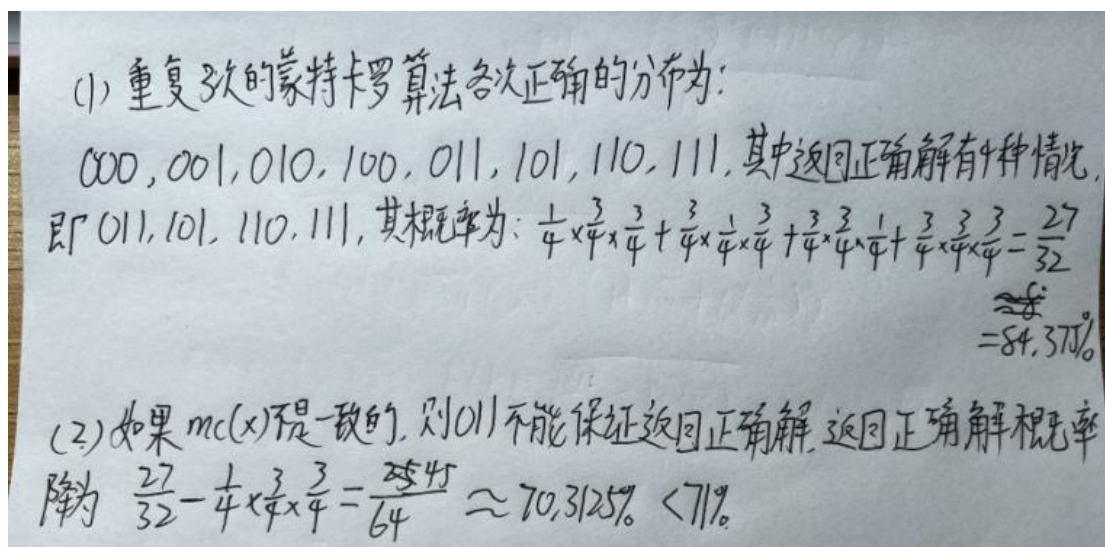 (1) 重复3次的蒙特卡罗算法各次正确的分布为:
000, 001, 010, 100, 011, 101, 110, 111, 其中返回正确解有4种情况,
即 011, 101, 110, 111, 其概率为: 1/4 × 3/4 × 3/4 + 3/4 × 1/4 × 3/4 + 3/4 × 3/4 × 1/4 + 3/4 × 3/4 × 3/4 = 27/32
=84.375%
(2) 如果 mc(x)不是一致的, 则011不能保证返回正确解, 返回正确解概率
降为 27/32 - 1/4 × 3/4 × 3/4 = 45/64 ≈ 70.3125% < 71%.